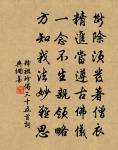 斷除須髮著僧衣
精進當遵古佛儀
一念不生親領略
方知我法妙難思
釋祖珍偈三十五首詞